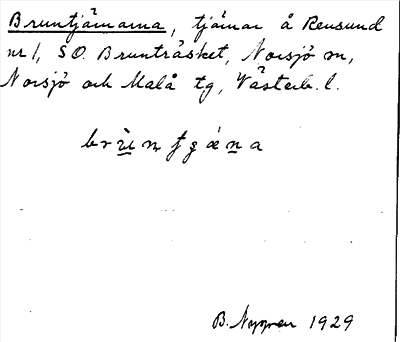 Bruntjärnarna, tjärnar å Rensund
nr 1, SO. Bruntråsket, Norsjö sn,
Norsjö och Malå tg, Västerb. l.
B. Nygren 1929